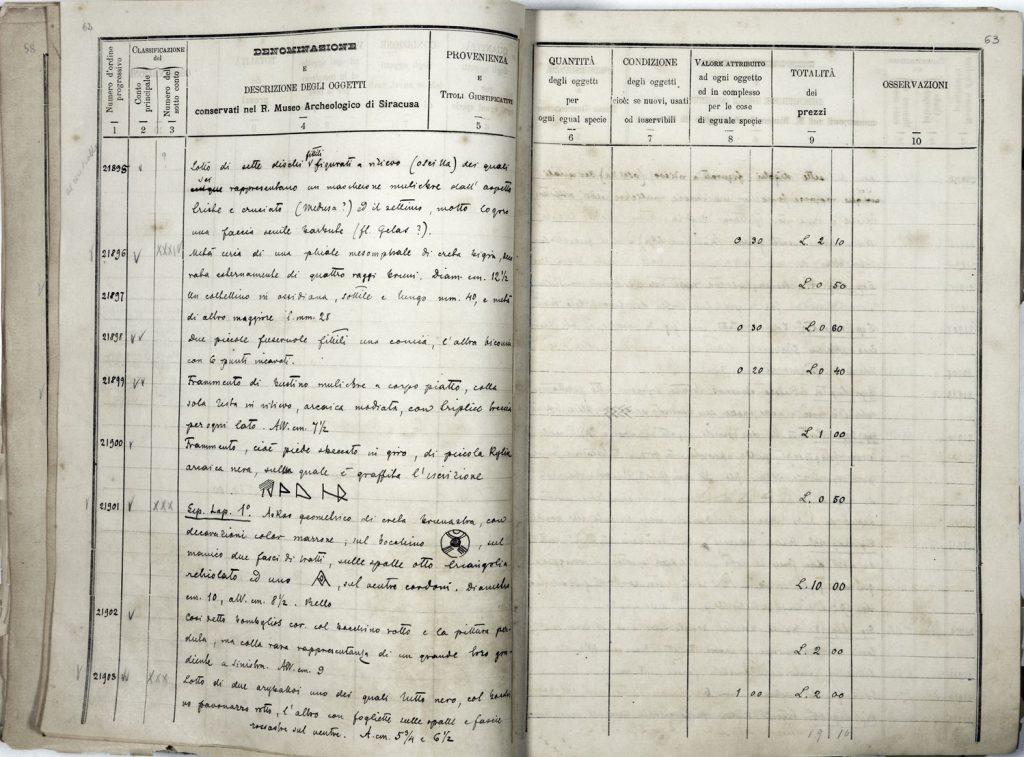 63
58
63
Numero d'ordine progressivo
CLASSIFICAZIONE
del
Conto principale
Numero del sotto conto
DENOMINAZIONE
E
DESCRIZIONE DEGLI OGGETTI
conservati nel R. Museo Archeologico di Siracusa
PROVENIENZA
E
TITOLI GIUSTIFICATIVI
QUANTITÀ
degli oggetti
per
ogni egual specie
CONDIZIONE
degli oggetti
cioè: se nuovi, usati
od inservibili
VALORE ATTRIBUITO
ad ogni oggetto
ed in complesso
per le cose
di eguale specie
TOTALITÀ
dei
prezzi
OSSERVAZIONI
1 2 3 4 5 6 7 8 9 10
fittili
21895 Lotto di sette dischi figurati a rilievo (oscilla) dei quali
sei
cinque rappresentano un mascherone muliebre dall'aspetto
triste e cruciato (Medusa?) ed il settimo, molto logoro
una faccia senile barbuta (fl. Gelas?). 0 30 L. 2 10
21896 XXXIV Metà circa di una phiale mesomphale di creta bigia,
esternamente di quattro raggi bruni. Diam. cm. 12 1/2 L. 0 50
21897 Un coltellino in ossidiana, sottile e lungo mm. 40, e metà
di altro maggiore l. mm. 28 0 30 L. 0 60
21898 Due piccole fuseruole fittili una conica, l'altra biconica
con 6 punti incavati. 0 20 L. 0 40
21899 Frammento di bustino muliebre a corpo piatto, colla
sola testa in rilievo, arcaica modiata, con triplice treccia
per ogni lato. Alt. cm. 7 1/2 L. 1 00
21900 Frammento, cioè piede staccato in giro, di piccola Kylix
arcaica nera, sulla quale è graffita l'iscrizione
L. 0 50
21901 XXX Sep. Lap. 1° Askos geometrico di creta brunastra, con
decorazioni color marrone; sul bocchino , sul
manico due fasci di tratti, sulle spalle otto triangoli a
reticolato ed uno , sul ventre cordoni. Diametro
cm. 10, alt. cm. 8 1/2. Bello L. 10 00
21902 Così detto bombylios cor. col bocchino rotto e la pittura per-
duta, ma colla rara rappresentanza di un grande toro gra-
diente a sinistra. Alt. cm. 9 L. 2 00
21903 XXX Lotto di due aryballoi uno dei quali tutto nero, col
pavonazzo rotto, l'altro con fogliette sulle spalle e fascie
rossastre sul ventre. A. cm. 5 3/4 e 6 1/2 1 00 L. 2 00
19 10